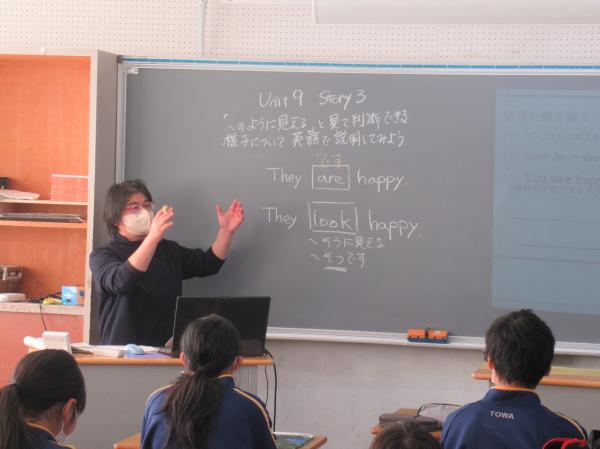 Unit 9 Story 3
「〜のように見える」と見て判断できる
様子について英語で説明してみよう
です
They are happy.
They look happy.
〜そうに見える
〜そうです
学習の振り返り
he = she
You are happy
TOWA